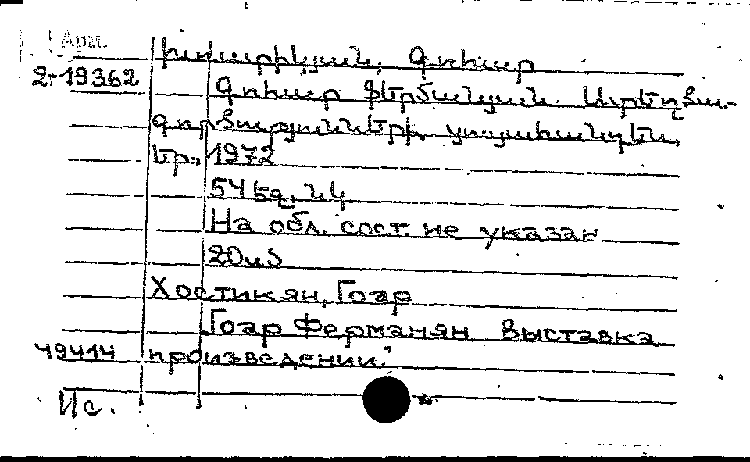 Арм.
Խոստիկյան, Գոհար
2-19362
Գոհար Ֆերմանյան. Ստեղծա-
գործությունների
Եր., 1972
54 էջ, նկ
На обл. сост. не указан
Хостикян, Гоар
Гоар Ферманян выставка
49414 произведении."
Ис.